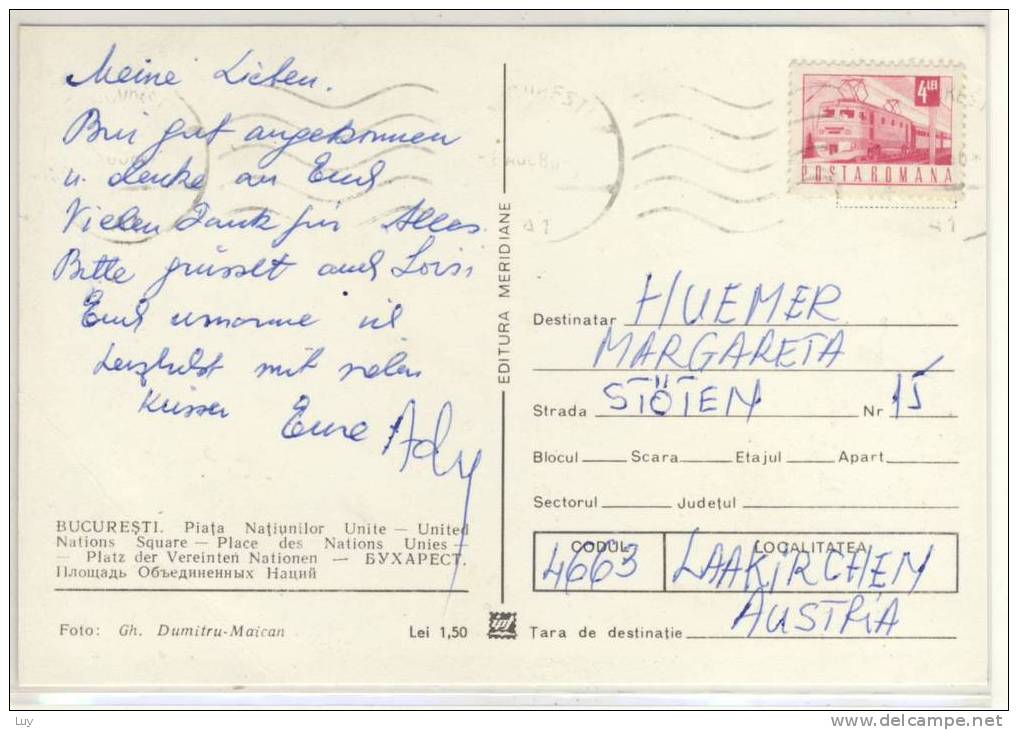 Meine Lieben.
Bin gut angekommen
u. denke an Euch
Vielen Dank für Alles.
Bitte grüsset auch Loisi
Euch umarme ich
herzlichst mit vielen
Küssen Eure Ady
BUCUREȘTI. Piața Națiunilor Unite — United
Nations Square — Place des Nations Unies —
— Platz der Vereinten Nationen — БУХАРЕСТ.
Площадь Объединенных Наций
Foto: Gh. Dumitru-Maican Lei 1,50
EDITURA MERIDIANE
4 LEI
POSTA ROMANA
41
41
Destinatar HUEMER
MARGARETA
Strada STÖTEN Nr 15
Blocul Scara Etajul Apart
Sectorul Județul
CODUL LOCALITATEA
4663 LAAKIRCHEN
AUSTRIA
Țara de destinație
Luy
www.delcampe.net